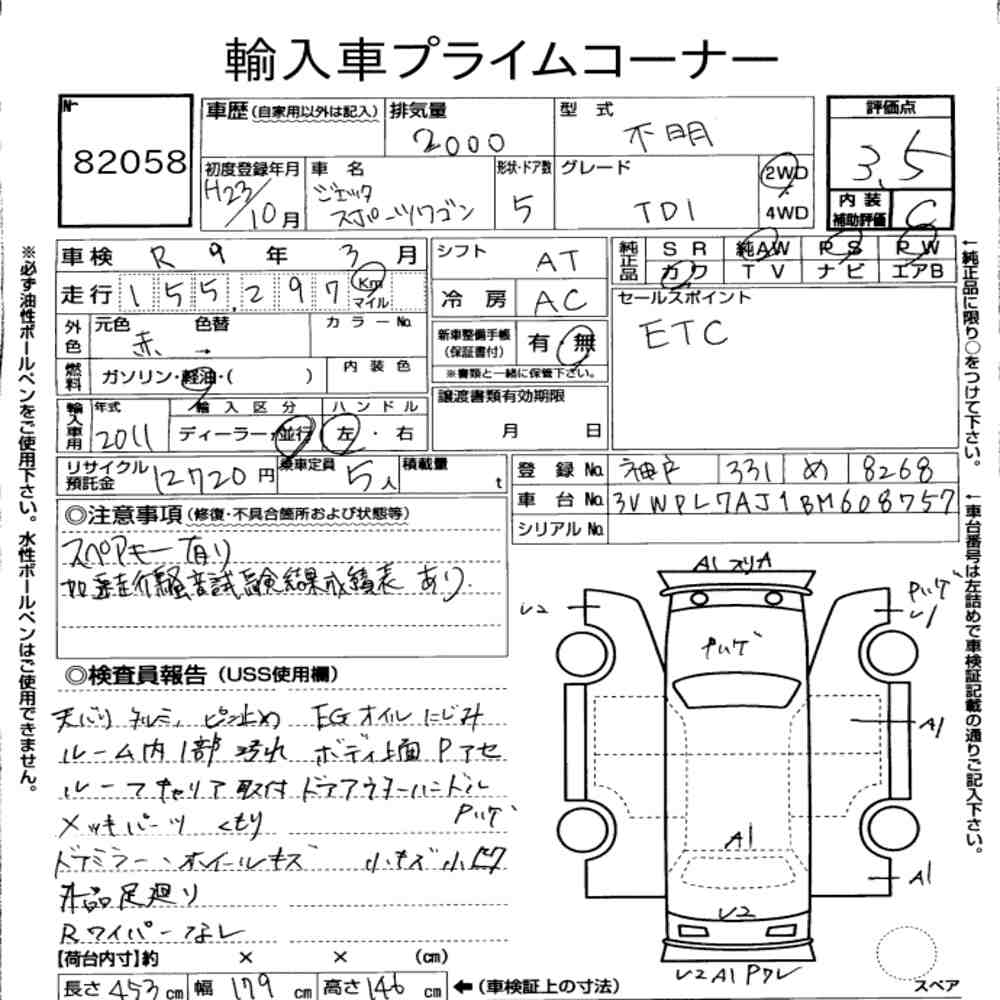 輸入車プライムコーナー
No 82058
車歴(自家用以外は記入) 排気量 2000 型式 不明 評価点 3.5
初度登録年月 H23/10月 車名 ジェッタ スポーツワゴン 形状・ドア数 5 グレード TDI 2WD 4WD
内装補助評価 C
車検 R 9年 3月 シフト AT 純正品 SR 純AW PS PW
走行 155,297 Km マイル 冷房 AC カワ TV ナビ エアB
外色 元色 赤 → 色替 カラーNo. 新車整備手帳(保証書付) 有・無 セールスポイント
ETC
燃料 ガソリン・軽油・( ) 内装色 ※書類と一緒に保管下さい。
輸入車用 年式 2011 輸入区分 ディーラー・並行 ハンドル 左・右 譲渡書類有効期限 月 日
リサイクル預託金 12720円 乗車定員 5人 積載量 t 登録No. 神戸 331 め 8268
車台No. 3VWPL7AJ1BM608757
シリアルNo.
◎注意事項(修復・不具合箇所および状態等)
スペアキー有り
加速走行騒音試験結果成績表 あり
◎検査員報告(USS使用欄)
天バリ タルミ、ピン止め EGオイルにじみ
ルーム内1部汚れ ボディ上面Pアセ
ルーフキャリア取付 ドアアウターハンドル
Pハゲ
メッキパーツくもり
ドアミラー、ホイールキズ 小キズ小凹
外品足廻り
Rワイパーなし
A1 スリキ
U2
Pハゲ
U1
ハゲ
A1
A1
A1
U2
U2 A1 Pワレ
スペア
【荷台内寸】約 × × (cm)
長さ 453cm 幅 179cm 高さ 146cm ←(車検証上の寸法)
※必ず油性ボールペンをご使用下さい。水性ボールペンはご使用できません。
←純正品に限り○をつけて下さい。
←車台番号は左詰めで車検証記載の通りご記入下さい。